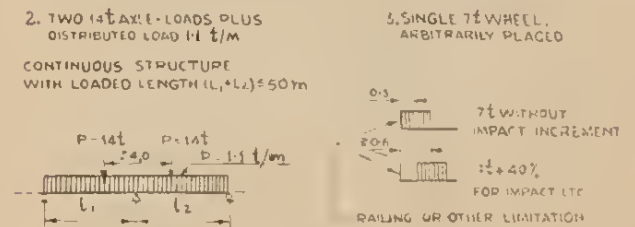 2. TWO 14t AXLE-LOADS PLUS
DISTRIBUTED LOAD 1.1 t/m
CONTINUOUS STRUCTURE
WITH LOADED LENGTH (L1+L2) ≤ 50m
P=14t P=14t
4,0 p=1.1 t/m
l1 l2
3. SINGLE 7t WHEEL,
ARBITRARILY PLACED
0.3
7t WITHOUT
IMPACT INCREMENT
≥0.6
7t+40%
FOR IMPACT ETC
RAILING OR OTHER LIMITATION